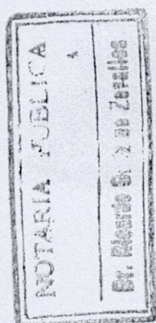 NOTARIA PUBLICA
Dr. Ricardo
de Zevallos